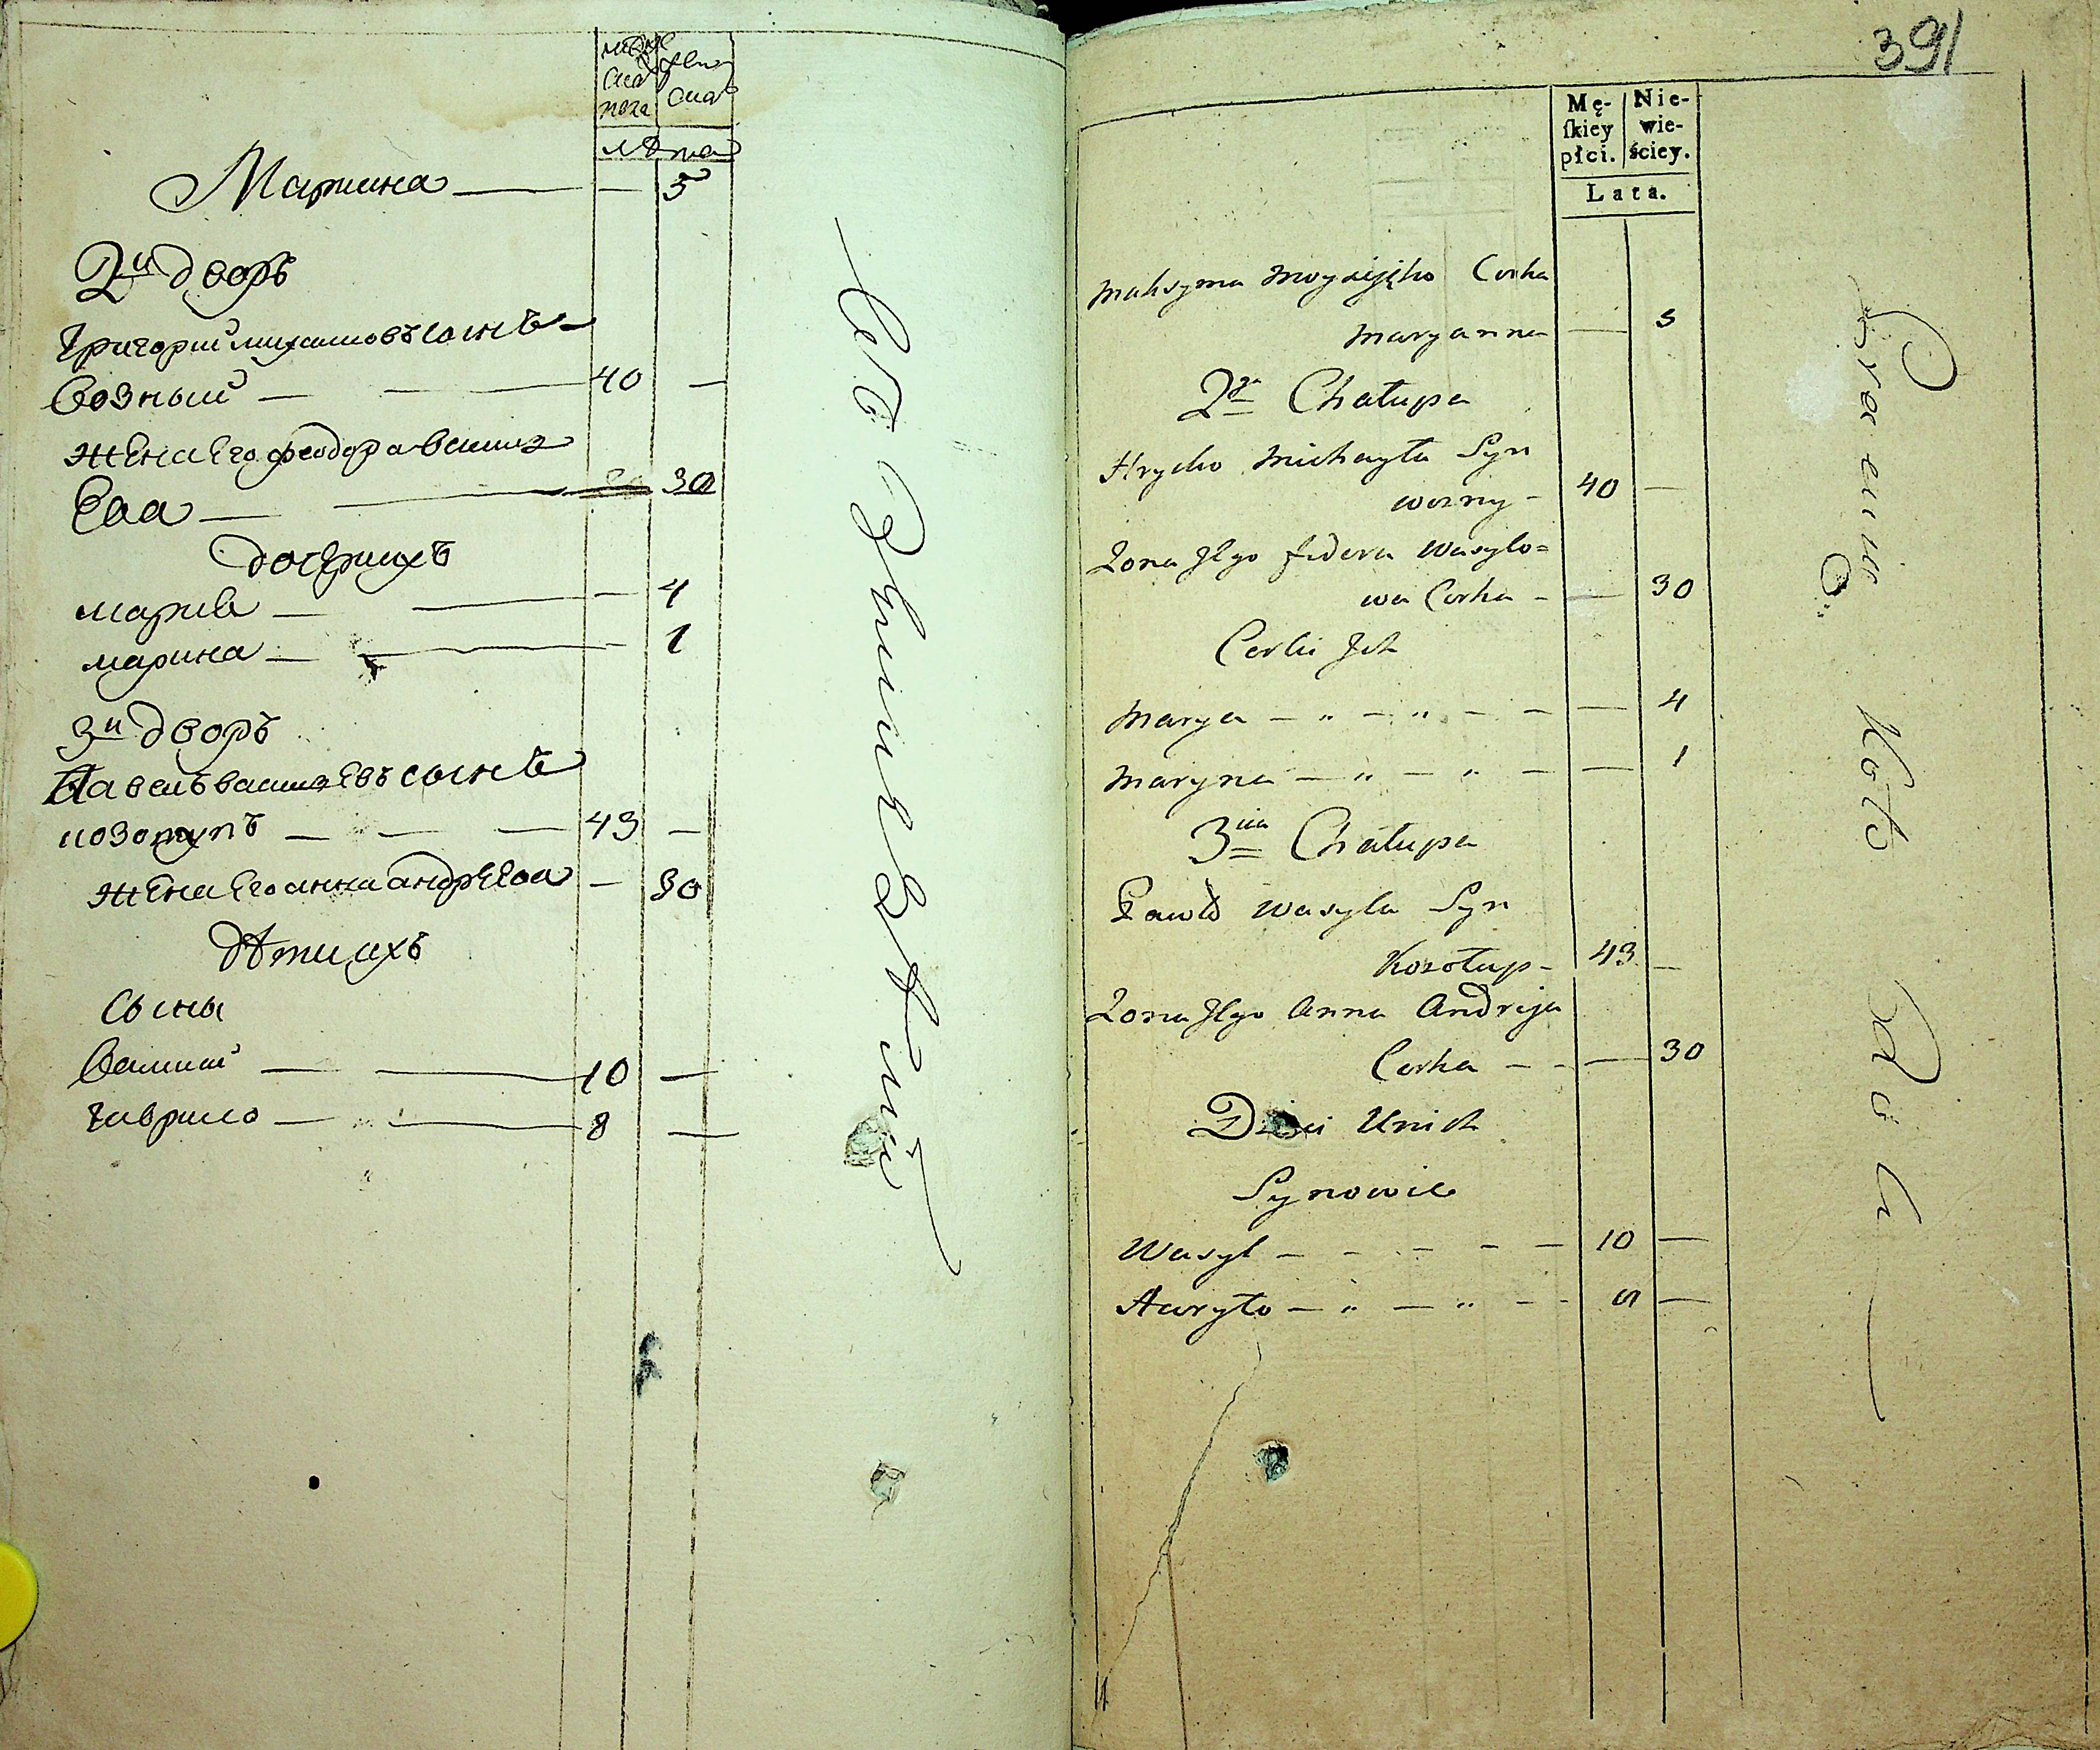 мужеска пола
женска
лѣта
Мартина — — 5
2й дворъ
Григорий михаиловъ сынъ
возный — — — 40 —
жена Его феодора васил
Ева — — 30
дочери ихъ
мария — — — 4
марина — — — 1
3й дворъ
Павелъ василевъ сынъ
козолупъ — — — 43 —
жена Его анна андрѣева — 30
дѣти ихъ
Сыны
василий — — 10 —
гаврило — — 8 —
391
Mę-
ſkiey
płci.
Nie-
wie-
ściey.
Lata.
Maksyma Corka
Maryanna — 5
2ga Chałupa
Hrycko Michayła Syn
wozny - 40 —
Zona Jego fedora Wasylo=
wa Corka - — 30
Corki Jch
Marya — „ — „ — — — 4
Maryna — „ — „ — — 1
3cia Chałupa
Pawło Wasyla Syn
Kozołup - 43 —
Zona Jego Anna Andrija
Corka — - — 30
Dzieci Unich
Synowie
Wasyl — - — - — 10 —
Hawryło — „ — „ — - —